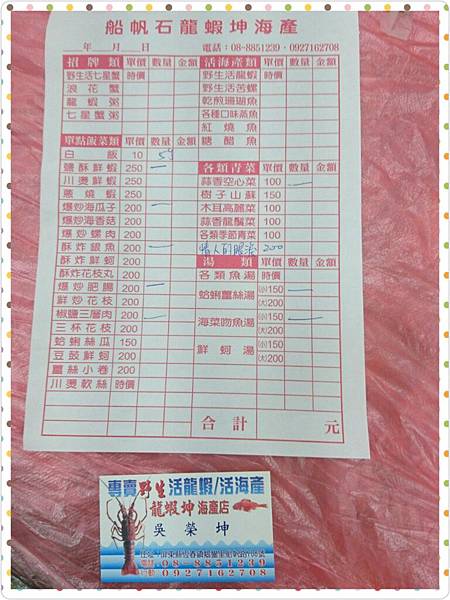 船帆石龍蝦坤海產
年 月 日 電話:08-8851239·0927162708
招牌類 單價 數量 金額
野生活七星蟹 時價
浪花蟹
龍蝦粥
七星蟹粥
單點飯菜類 單價 數量 金額
白飯 10
鹽酥鮮蝦 250 一
川燙鮮蝦 250
蔥燒蝦 250
爆炒海瓜子 200 一
爆炒海香菇 200
爆炒螺肉 200
酥炸銀魚 200 一
酥炸鮮蚵 200
酥炸花枝丸 200
爆炒肥腸 200 一
鮮炒花枝 200
椒鹽三層肉 200 一
三杯花枝 200
蛤蜊絲瓜 150
豆豉鮮蚵 200
薑絲小卷 200
川燙軟絲 時價
活海產類 單價 數量 金額
野生活龍蝦 時價
野生活苦螺
乾煎珊瑚魚
各種口味蒸魚
紅燒魚
糖醋魚
各類青菜 單價 數量 金額
蒜香空心菜 100 一
樹子山蘇 150
木耳高麗菜 100
蒜香龍鬚菜 100
各類季節青菜 100
情人的眼淚 200
湯類 單價 數量 金額
各類魚湯 時價
蛤蜊薑絲湯 (小)150 一
(大)200
海菜吻魚湯 (小)150
(大)200
鮮蚵湯 (小)150
(大)200
合計 元
專賣野生活龍蝦/活海產
龍蝦坤海產店
吳榮坤
電話:08-8851239
行動:0927162708